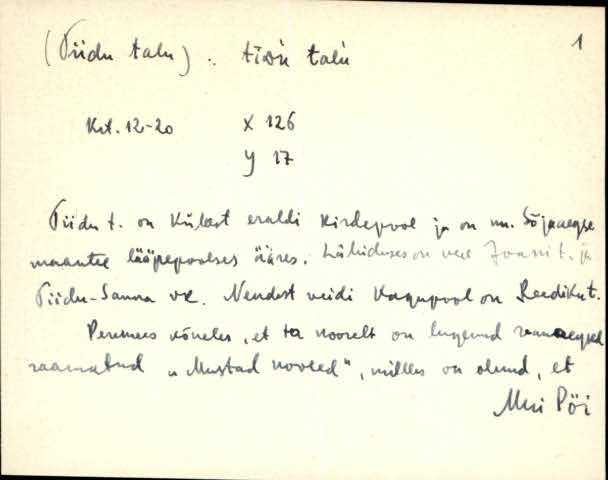 (Tiidu talu) : tīᴅù talù 1
Krt. 12-20 X 126
Y 17
Tiidu t. on külast eraldi kirdepool ja on nn. Sõjaaegse
maantee lääpepoolses ääres. Läheduses on veel Joosni t. ja
Tiidu-Sauna vk. Nendest veidi kagupool on Reediku t.
Peremees kõneles, et ta noorelt on lugenud vanaaegsed
raamatud „Mustad nooled", milles on olnud, et
Mus Pöi